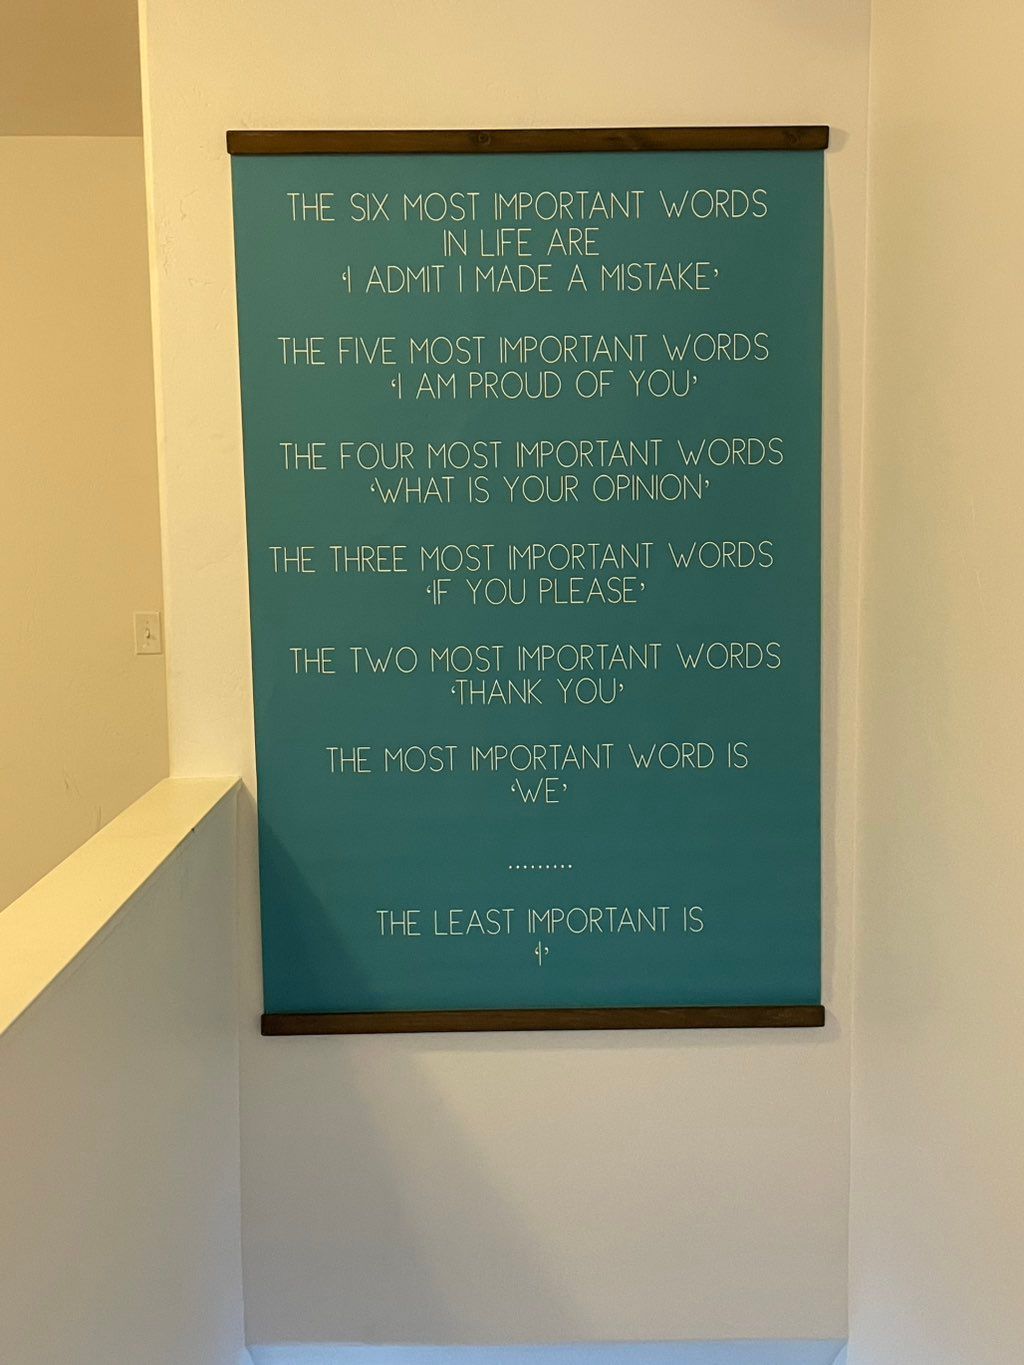 THE SIX MOST IMPORTANT WORDS
IN LIFE ARE
‘I ADMIT I MADE A MISTAKE’
THE FIVE MOST IMPORTANT WORDS
‘I AM PROUD OF YOU’
THE FOUR MOST IMPORTANT WORDS
‘WHAT IS YOUR OPINION’
THE THREE MOST IMPORTANT WORDS
‘IF YOU PLEASE’
THE TWO MOST IMPORTANT WORDS
‘THANK YOU’
THE MOST IMPORTANT WORD IS
‘WE’
.........
THE LEAST IMPORTANT IS
‘I’